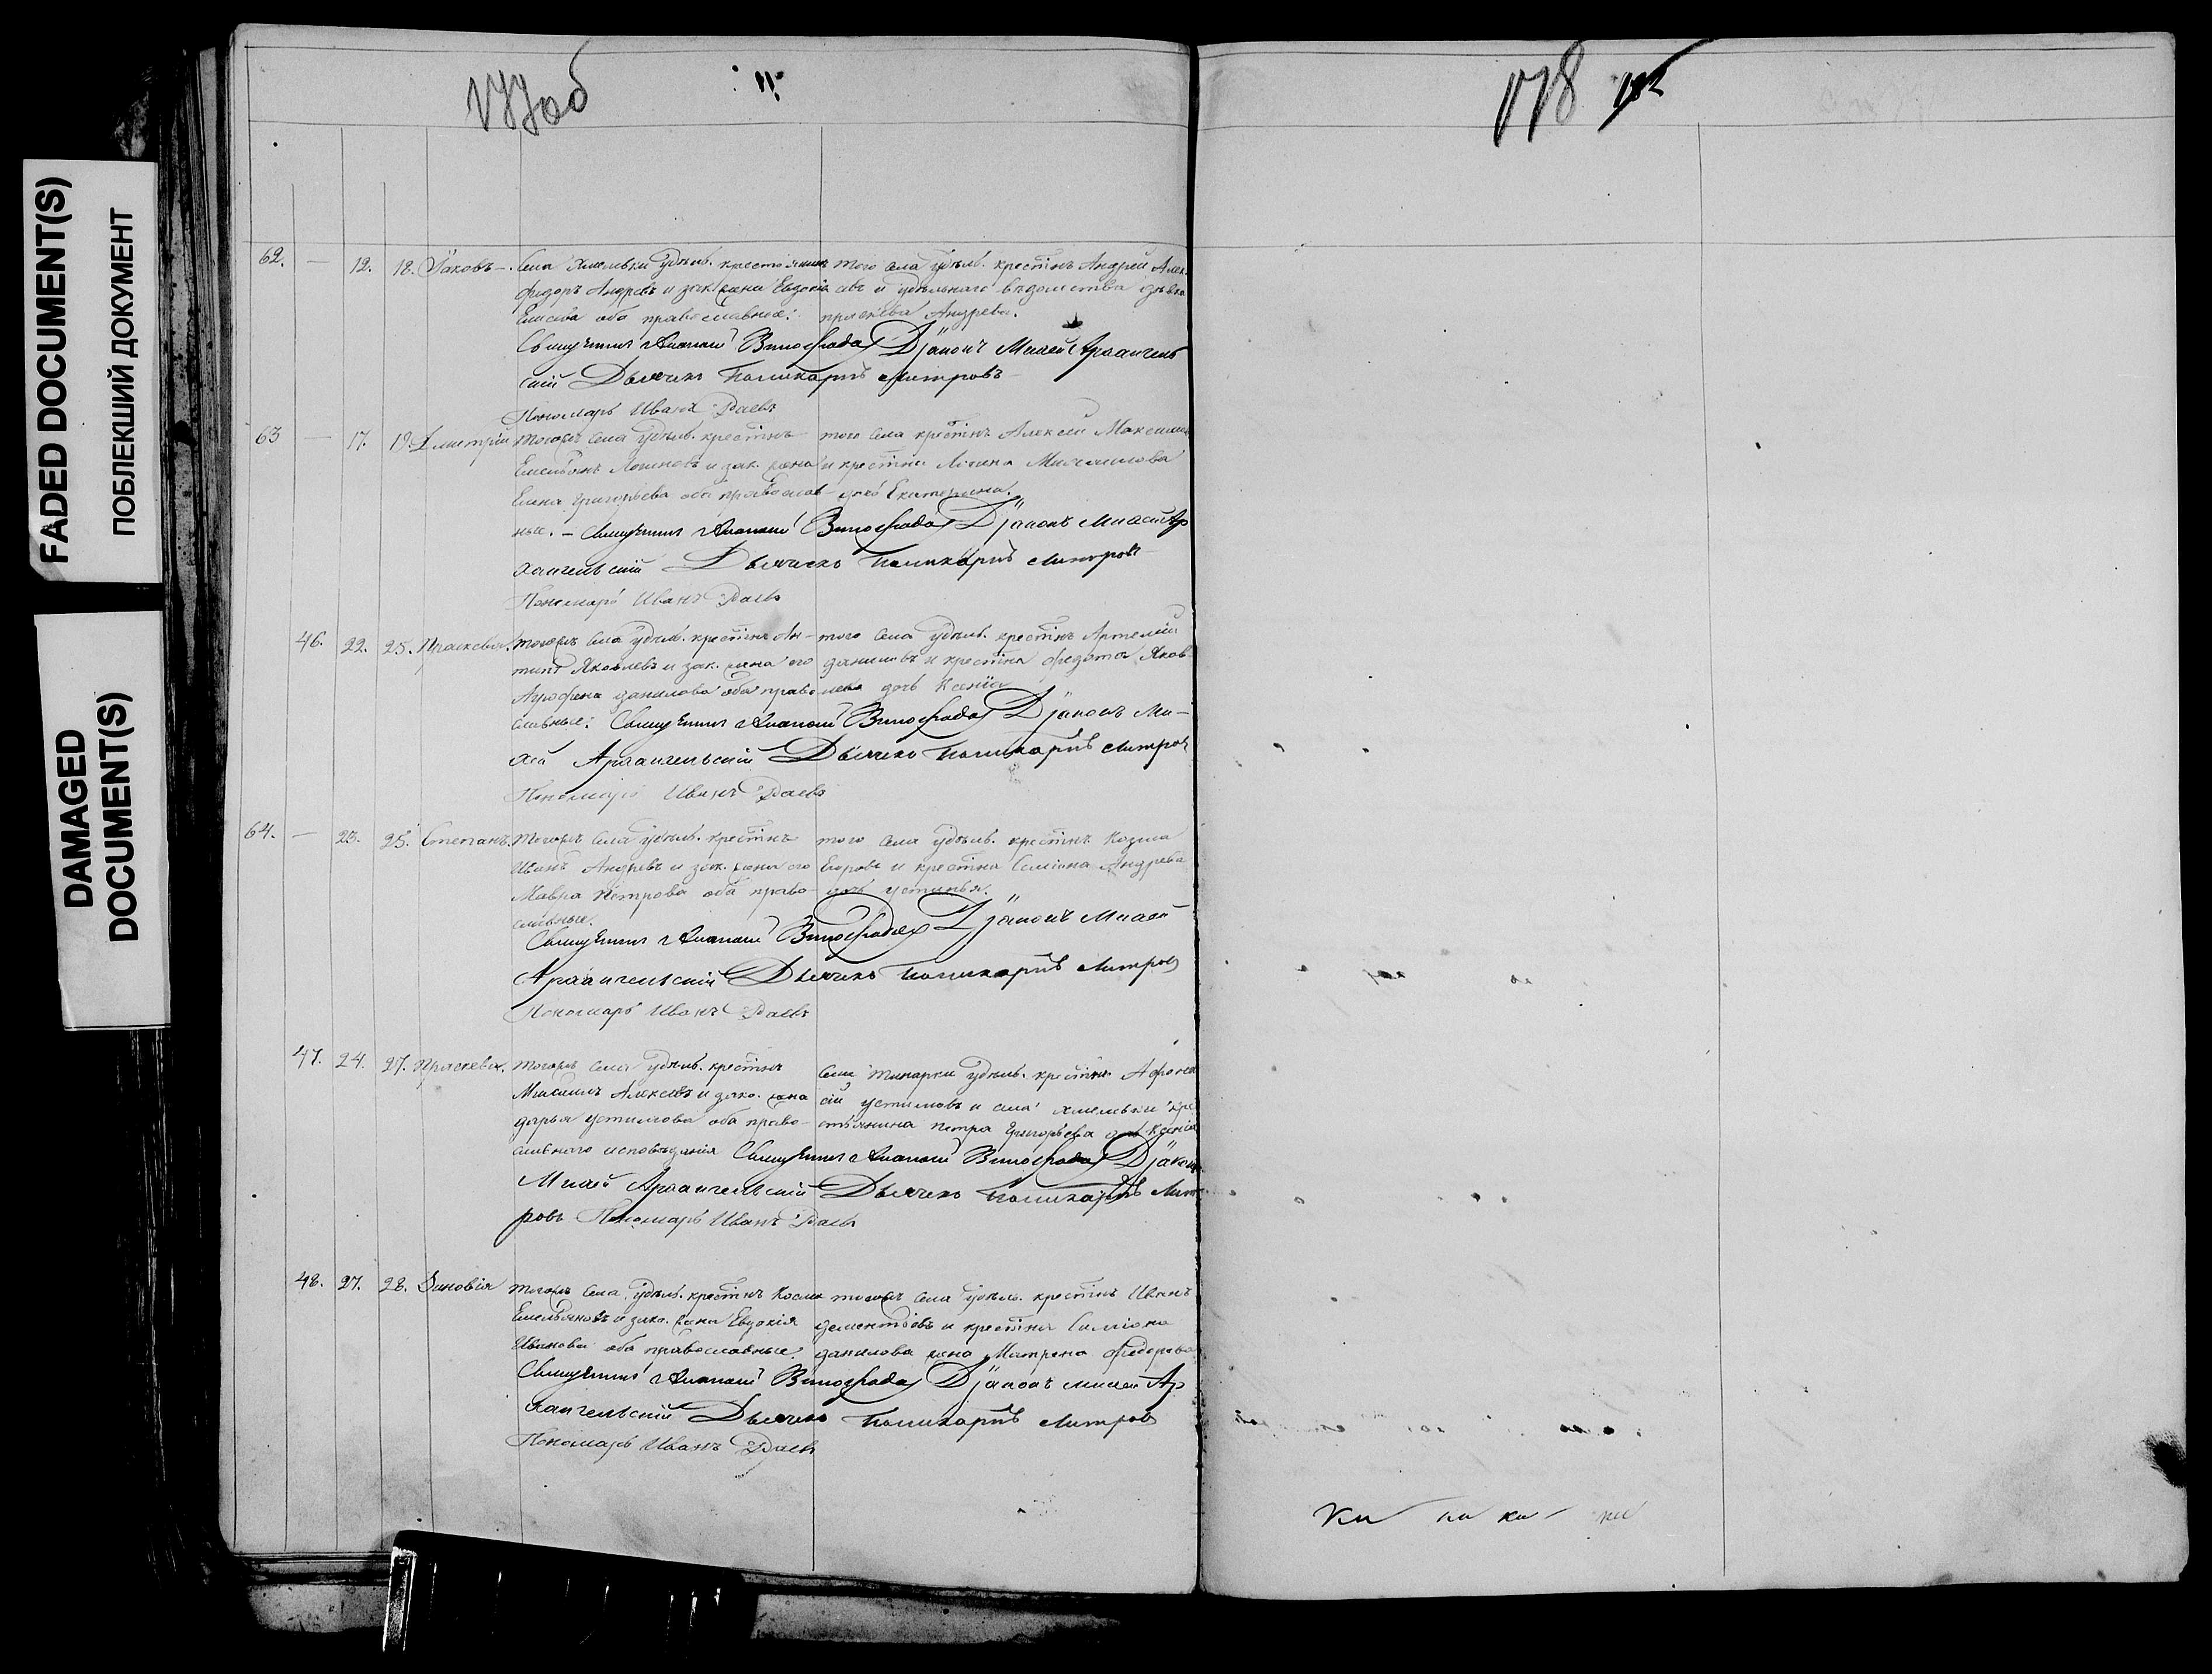 FADED DOCUMENT(S)
ПОБЛЕКШИЙ ДОКУМЕНТ
DAMAGED
DOCUMENT(S)
177об
178
62. — 12. 18. Іаковъ —. Села Хмелевки удѣльн. крестьянинъ
Федоръ Андреевъ и зак. жена Евдокія
оба православные.
того села удѣльн. крестнъ Андрей
и удѣльнаго вѣдомства дѣвка
Андреева.
Священникъ Виноградовъ Діаконъ Михаил Архангель
скій Дьячекъ Поликарпъ Митровъ
Пономарь Иванъ Раевъ
63 — 17. 19. Димитрій Тогожъ села удѣльн. крестнъ
Емельянъ Логиновъ и зак. жена
Елена Григорьева оба православ-
ные. —
того села крестнъ Алексей Максимовъ
и крестна Михайлова
дочь Екатерина.
Священникъ Виноградовъ Діаконъ Михаил Ар
хангельскій Дьячекъ Поликарпъ Митровъ
Пономарь Иванъ Раевъ
46. 22. 25. Праскевья. Тогожъ села удѣльн. крестнъ Ан-
типъ Яковлевъ и зак. жена его
Агрофена Данилова оба право-
славные.
того села удѣльн. крестнъ Артемій
Даниловъ и крестна Федота Яков-
лева дочь Ксенія
Священникъ Виноградовъ Діаконъ Ми-
хаи Архангельскій Дьячекъ Поликарпъ Митровъ
Пономарь Иванъ Раевъ
64. — 23. 25. Степанъ. Тогожъ села удѣльн. крестнъ
Иванъ Андреевъ и зак. жена его
Мавра Петрова оба право-
славные.
того села удѣльн. крестнъ Козма
Егоровъ и крестна Семіона Андреева
дочь Устинья.
Священникъ Виноградовъ Діаконъ Михаил
Архангельскій Дьячекъ Поликарпъ Митровъ
Пономарь Иванъ Раевъ
47. 24. 27. Праскевья. Тогожъ села удѣльн. крестнъ
Михаилъ Алексеевъ и зако. жена
Дарья Устимова оба право-
славнаго исповѣданія
села удѣльн. крестнъ Афонас
ій Устимовъ и села Хмелевки кре
стьянина Петра Григорьева дочь Ксенія
Священникъ Виноградовъ Діаконъ
Михаил Архангельскій Дьячекъ Поликарпъ Мит-
ровъ Пономарь Иванъ Раевъ
48. 27. 28. Зиновія Тогожъ села удѣльн. крестнъ Косма
Емельяновъ и зако. жена Евдокія
Иванова оба православные.
тогожъ села удѣльн. крестнъ Иванъ
Дементьевъ и крестна Симіона
Данилова жена Матрена Федорова
Священникъ Виноградовъ Діаконъ Михаил Ар
хангельскій Дьячекъ Поликарпъ Митровъ
Пономарь Иванъ Раевъ
ки ки ки ки